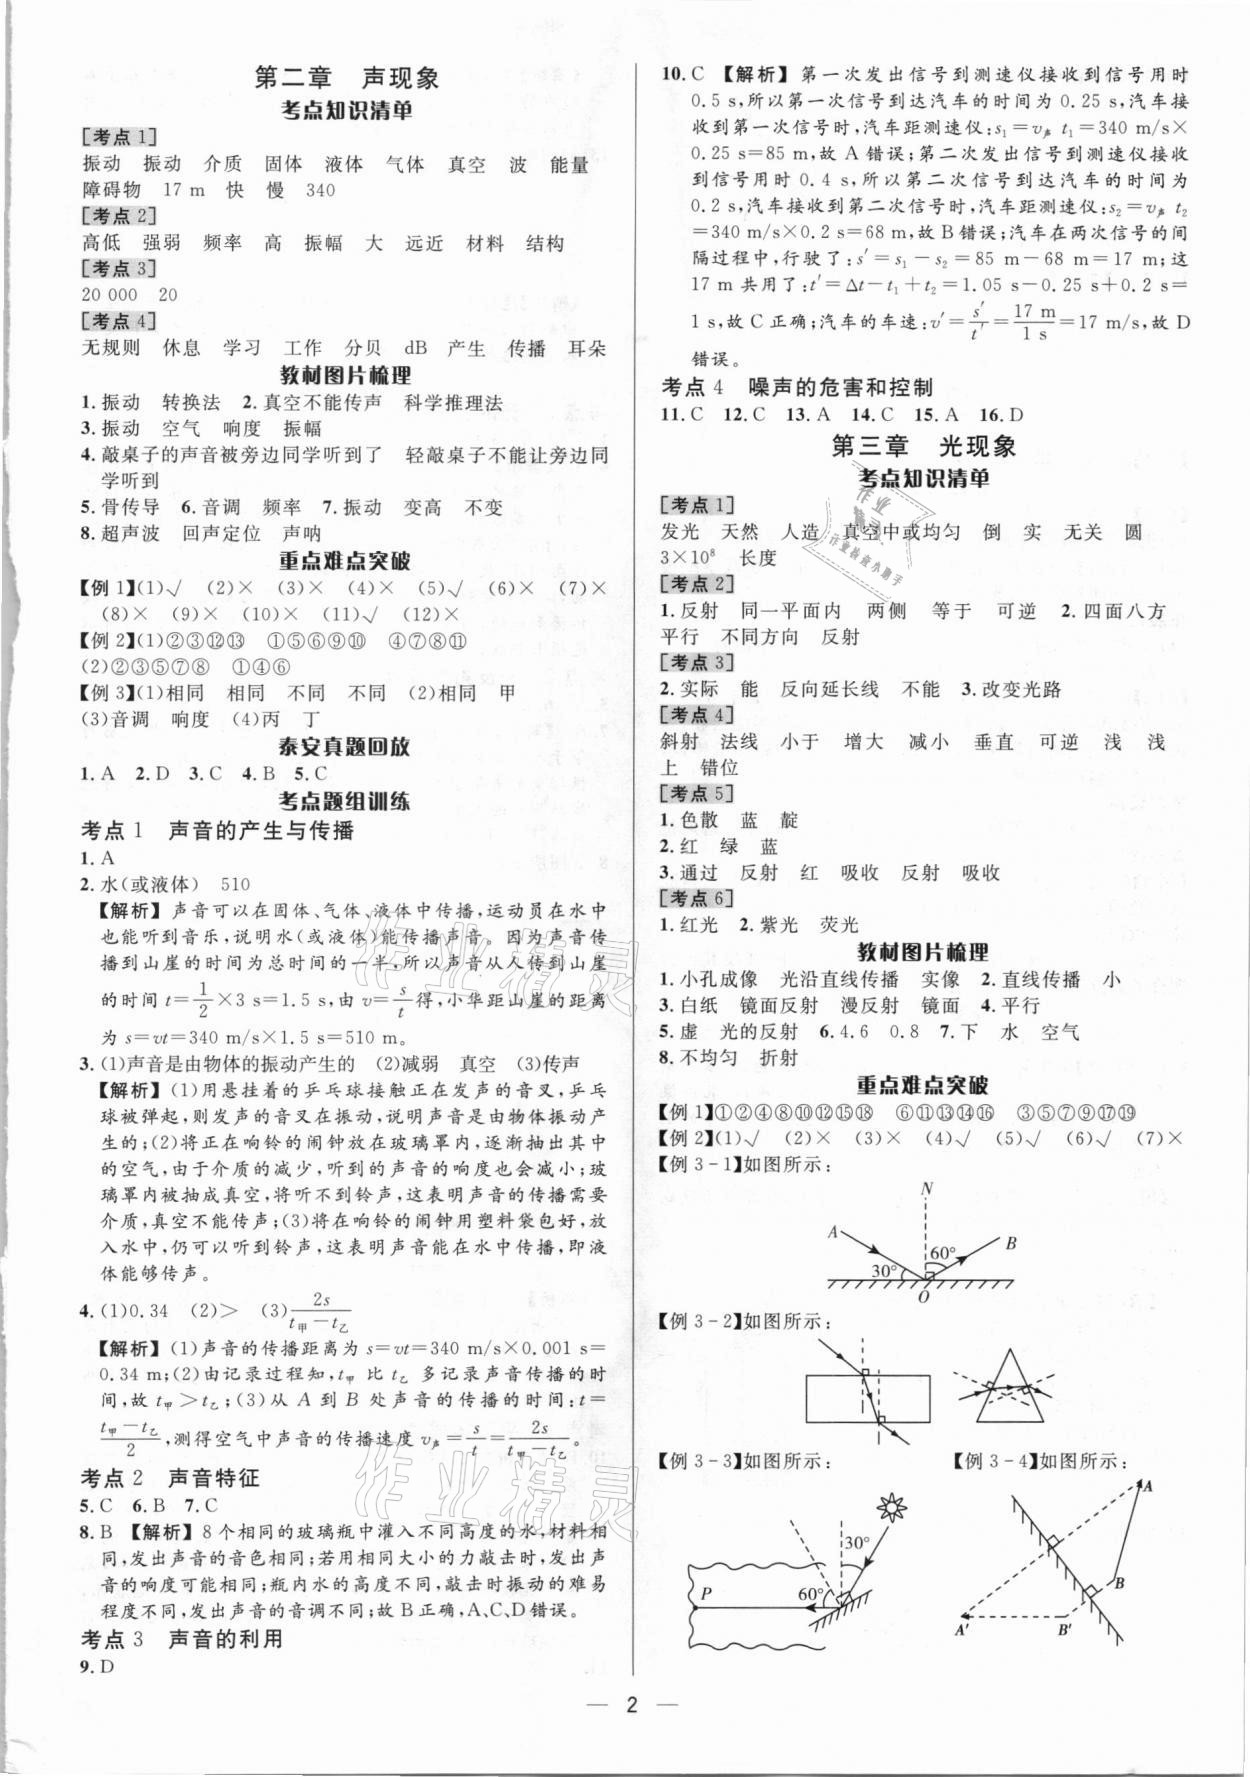 第二章 声现象
考点知识清单
[考点1]
振动 振动 介质 固体 液体 气体 真空 波 能量
障碍物 17 m 快 慢 340
[考点2]
高低 强弱 频率 高 振幅 大 远近 材料 结构
[考点3]
20 000 20
[考点4]
无规则 休息 学习 工作 分贝 dB 产生 传播 耳朵
教材图片梳理
1.振动 转换法 2.真空不能传声 科学推理法
3.振动 空气 响度 振幅
4.敲桌子的声音被旁边同学听到了 轻敲桌子不能让旁边同
学听到
5.骨传导 6.音调 频率 7.振动 变高 不变
8.超声波 回声定位 声呐
重点难点突破
【例1】(1)√ (2)× (3)× (4)× (5)√ (6)× (7)×
(8)× (9)× (10)× (11)√ (12)×
【例2】(1)②③⑫⑬ ①⑤⑥⑨⑩ ④⑦⑧⑪
(2)②③⑤⑦⑧ ①④⑥
【例3】(1)相同 相同 不同 不同 (2)相同 甲
(3)音调 响度 (4)丙 丁
泰安真题回放
1.A 2.D 3.C 4.B 5.C
考点题组训练
考点1 声音的产生与传播
1.A
2.水(或液体) 510
【解析】声音可以在固体、气体、液体中传播,运动员在水中
也能听到音乐,说明水(或液体)能传播声音。因为声音传
播到山崖的时间为总时间的一半,所以声音从人传到山崖
的时间t=1/2×3 s=1.5 s,由v=s/t得,小华距山崖的距离
为s=vt=340 m/s×1.5 s=510 m。
3.(1)声音是由物体的振动产生的 (2)减弱 真空 (3)传声
【解析】(1)用悬挂着的乒乓球接触正在发声的音叉,乒乓
球被弹起,则发声的音叉在振动,说明声音是由物体振动产
生的;(2)将正在响铃的闹钟放在玻璃罩内,逐渐抽出其中
的空气,由于介质的减少,听到的声音的响度也会减小;玻
璃罩内被抽成真空,将听不到铃声,这表明声音的传播需要
介质,真空不能传声;(3)将在响铃的闹钟用塑料袋包好,放
入水中,仍可以听到铃声,这表明声音能在水中传播,即液
体能够传声。
4.(1)0.34 (2)> (3)2s/(t甲−t乙)
【解析】(1)声音的传播距离为s=vt=340 m/s×0.001 s=
0.34 m;(2)由记录过程知,t甲 比 t乙 多记录声音传播的时
间,故t甲>t乙;(3)从A到B处声音的传播的时间:t=
(t甲−t乙)/2,测得空气中声音的传播速度v声=s/t=2s/(t甲−t乙)。
考点2 声音特征
5.C 6.B 7.C
8.B 【解析】8个相同的玻璃瓶中灌入不同高度的水,材料相
同,发出声音的音色相同;若用相同大小的力敲击时,发出声
音的响度可能相同;瓶内水的高度不同,敲击时振动的难易
程度不同,发出声音的音调不同;故B正确,A、C、D错误。
考点3 声音的利用
9.D
10.C 【解析】第一次发出信号到测速仪接收到信号用时
0.5 s,所以第一次信号到达汽车的时间为0.25 s,汽车接
收到第一次信号时,汽车距测速仪:s1=v声 t1=340 m/s×
0.25 s=85 m,故A错误;第二次发出信号到测速仪接收
到信号用时0.4 s,所以第二次信号到达汽车的时间为
0.2 s,汽车接收到第二次信号时,汽车距测速仪:s2=v声 t2
=340 m/s×0.2 s=68 m,故B错误;汽车在两次信号的间
隔过程中,行驶了:s′=s1−s2=85 m−68 m=17 m;这
17 m共用了:t′=Δt−t1+t2=1.05 s−0.25 s+0.2 s=
1 s,故C正确;汽车的车速:v′=s′/t′=17 m/1 s=17 m/s,故D
错误。
考点4 噪声的危害和控制
11.C 12.C 13.A 14.C 15.A 16.D
第三章 光现象
考点知识清单
[考点1]
发光 天然 人造 真空中或均匀 倒 实 无关 圆
3×10⁸ 长度
[考点2]
1.反射 同一平面内 两侧 等于 可逆 2.四面八方
平行 不同方向 反射
[考点3]
2.实际 能 反向延长线 不能 3.改变光路
[考点4]
斜射 法线 小于 增大 减小 垂直 可逆 浅 浅
上 错位
[考点5]
1.色散 蓝 靛
2.红 绿 蓝
3.通过 反射 红 吸收 反射 吸收
[考点6]
1.红光 2.紫光 荧光
教材图片梳理
1.小孔成像 光沿直线传播 实像 2.直线传播 小
3.白纸 镜面反射 漫反射 镜面 4.平行
5.虚 光的反射 6.4.6 0.8 7.下 水 空气
8.不均匀 折射
重点难点突破
【例1】①②④⑧⑩⑫⑮⑱ ⑥⑪⑬⑭⑯ ③⑤⑦⑨⑰⑲
【例2】(1)√ (2)× (3)× (4)√ (5)√ (6)√ (7)×
【例3-1】如图所示:
N
A
B
60°
30°
O
【例3-2】如图所示:
【例3-3】如图所示: 【例3-4】如图所示:
30°
60°
P
A
B
A′
B′
— 2 —
作业精灵
作业精灵
作业
精灵
作业检查小助手